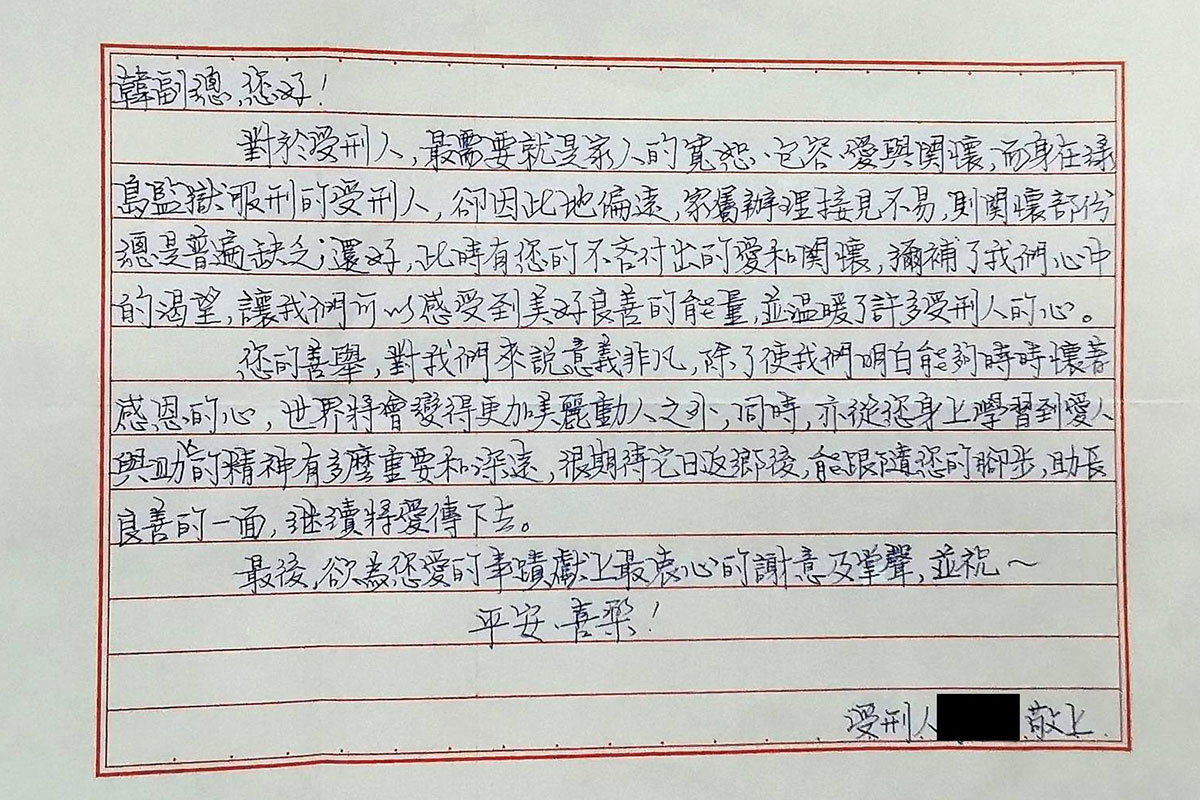 韓副總,您好!
對於受刑人,最需要就是家人的寬恕、包容、愛與関懷,而身在綠
島監獄服刑的受刑人,卻因此地偏遠,家眷辦理接見不易,則関懷部份
總是普遍缺乏;還好,此時有您的不吝付出的愛和関懷,彌補了我們心中
的渴望,讓我們可以感受到美好良善的能量,並温暖了許多受刑人的心。
您的善舉,對我們來說意義非凡,除了使我們明白能夠時時懷著
感恩的心,世界將會變得更加美麗動人之外,同時,亦從您身上學習到愛人
與助人的精神有多麼重要和深遠,很期待它日返鄉後,能跟隨您的腳步,助長
良善的一面,継續將愛傳下去。
最後,欲為您愛的事蹟獻上最衷心的謝意及掌聲,並祝~
平安、喜樂!
受刑人 敬上